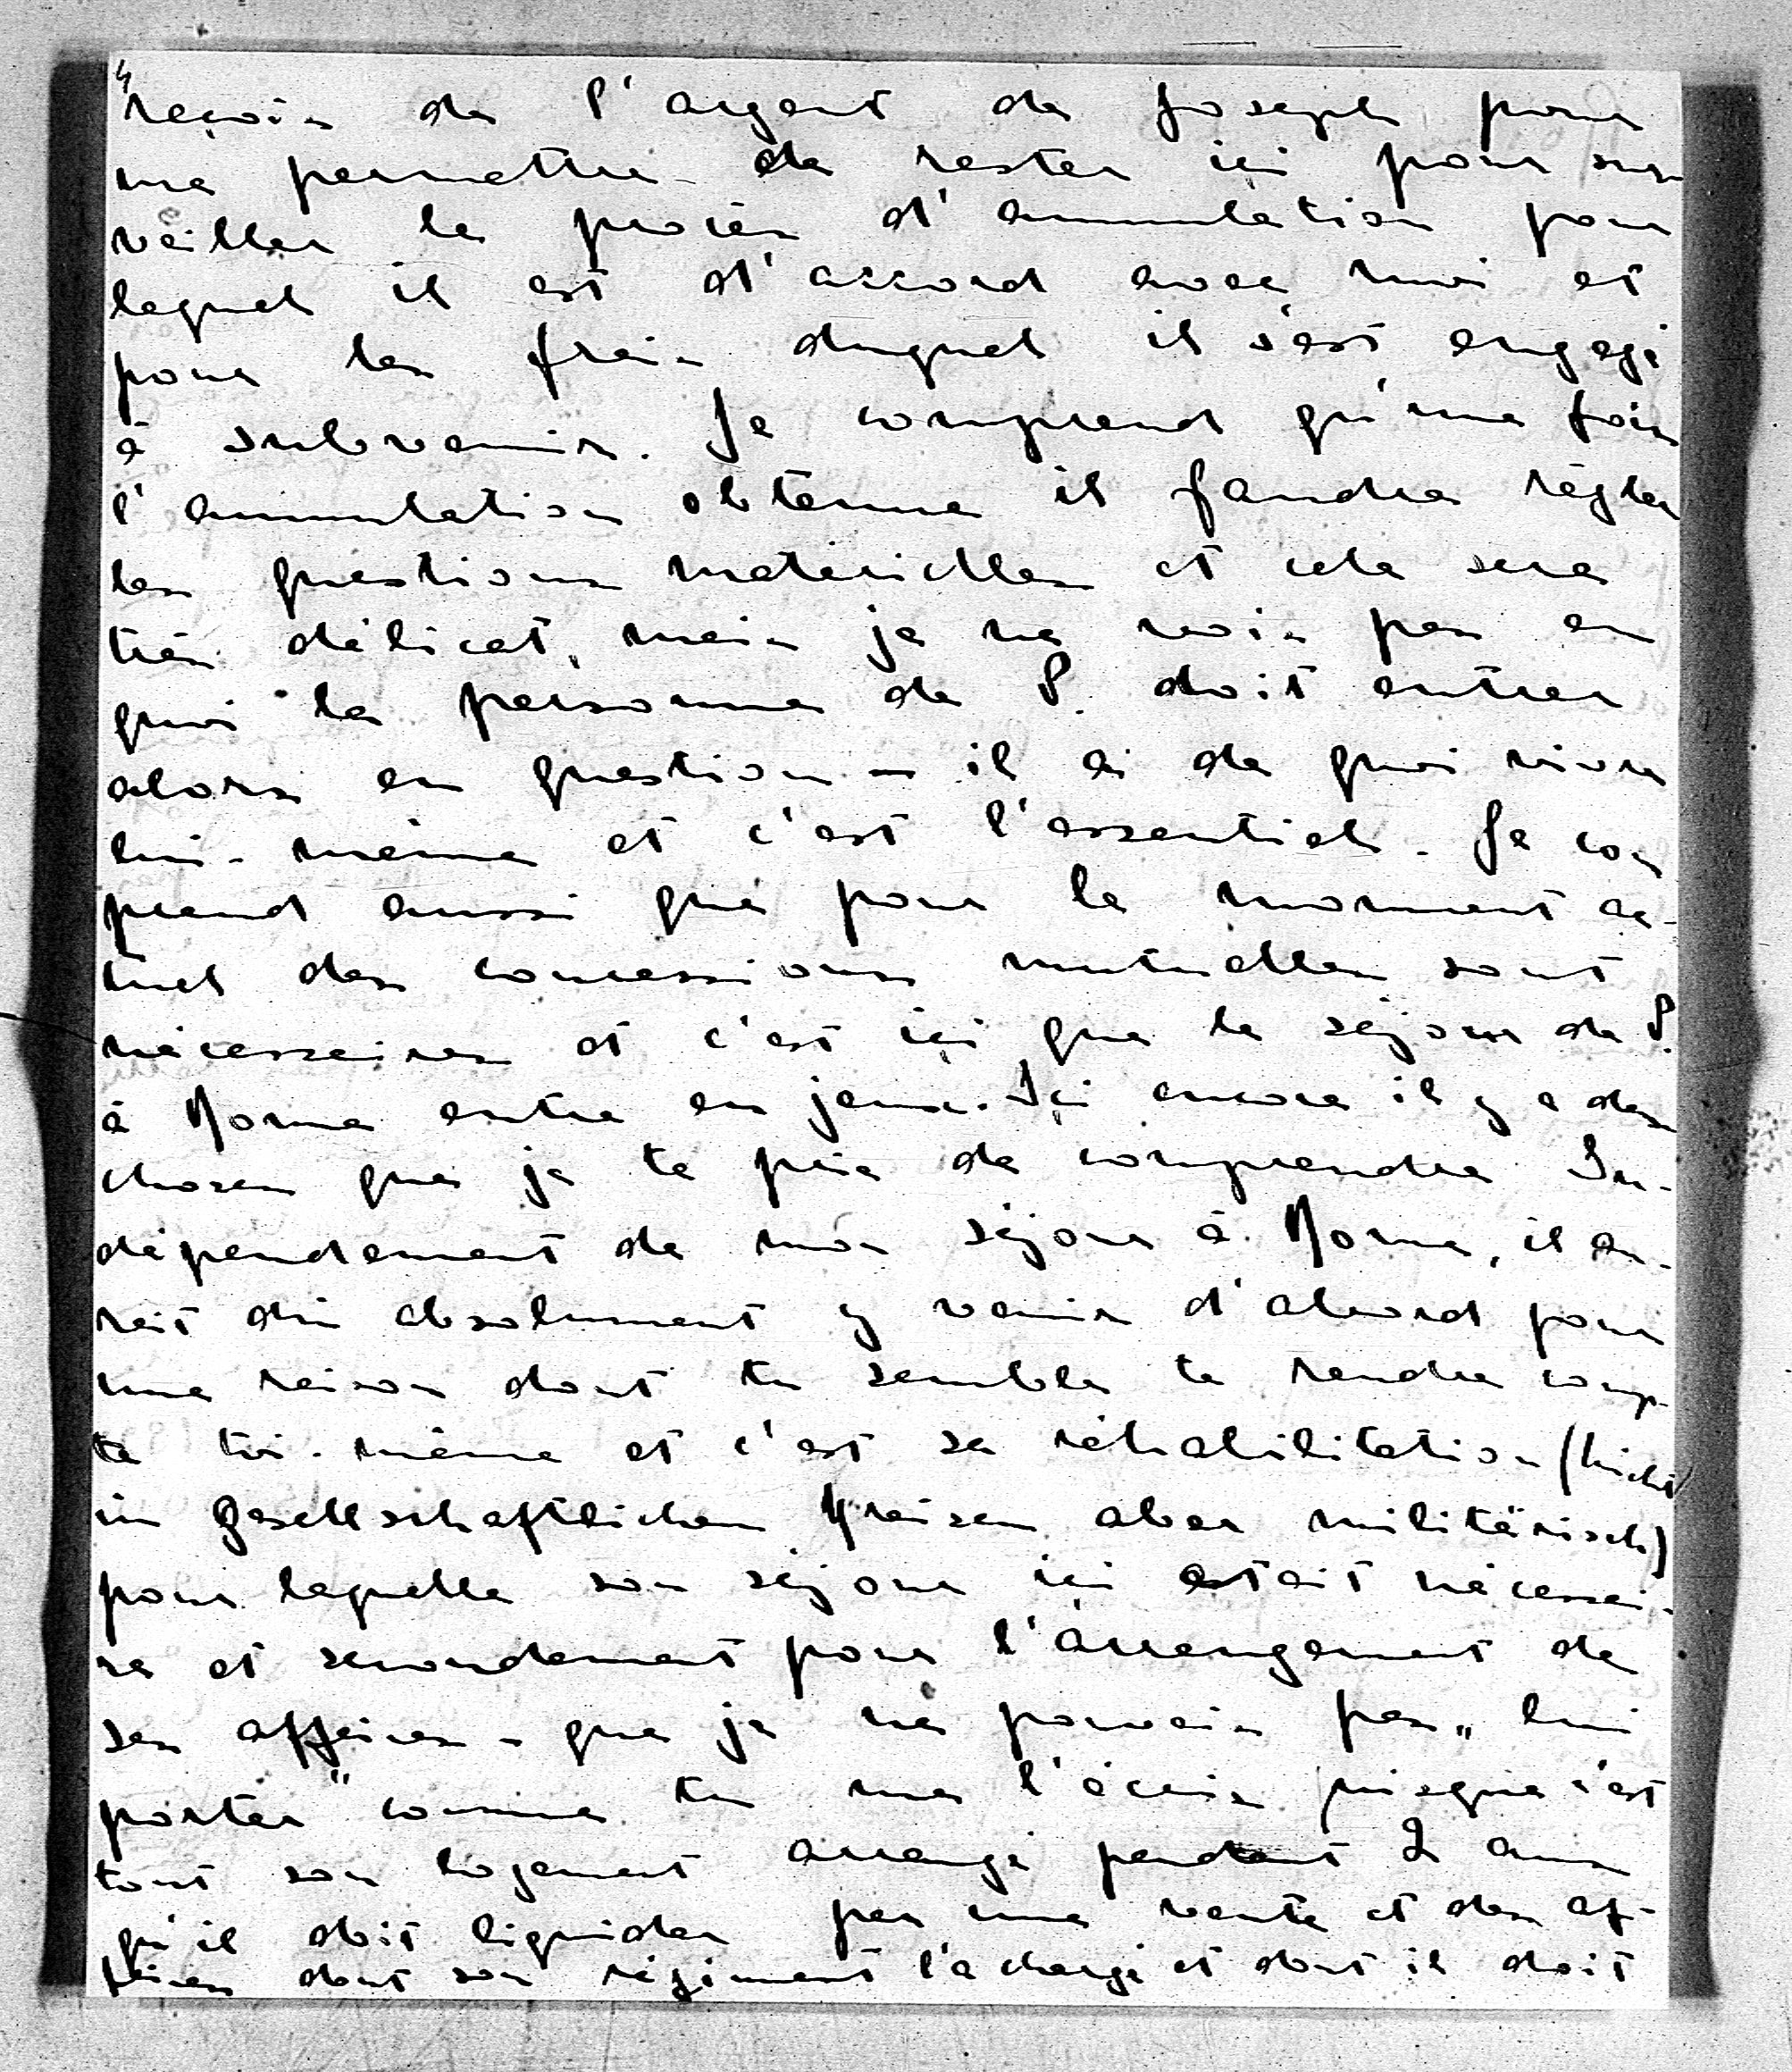 4
reçois de l'argent de Joseph pour
me permettre de rester ici pour sur
veiller le procès d'annulation pour
lequel il est d'accord avec moi et
pour les frais duquel il s'est engagé
à subvenir. Je comprend qu'une fois
l'annulation obtenue il faudra régler
les questions matérielles et cela sera
très délicat, mais je ne vois pas en
quoi la personne de P. doit entrer
alors en question – il a de quoi vivre
lui-même et c'est l'essentiel. Je com
prend aussi que pour le moment ac-
tuel des concessions mutuelles sont
nécessaires et c'est ici que le séjour de P.
à Rome entre en jeux. Ici encore il y a des
choses que je te prie de comprendre In-
dépendement de mon séjour à Rome, il au-
rait dû absolument y venir d'abord pour
une raison dont tu semble te rendre comp-
te toi-même et c'est sa réhabilitation (nicht
in gesellschaftlichen Kreisen aber militärisch)
pour laquelle son séjour ici estait nécessai-
re et secondement pour l'arrangement de
ses affaires – que je ne pouvais pas „lui
porter" comme tu me l'écris puisque c'est
tout son logement arrangé pendant 2 ans
qu'il doit liquider par une vente et des af-
faires dont son régiment l'a chargé et dont il doit